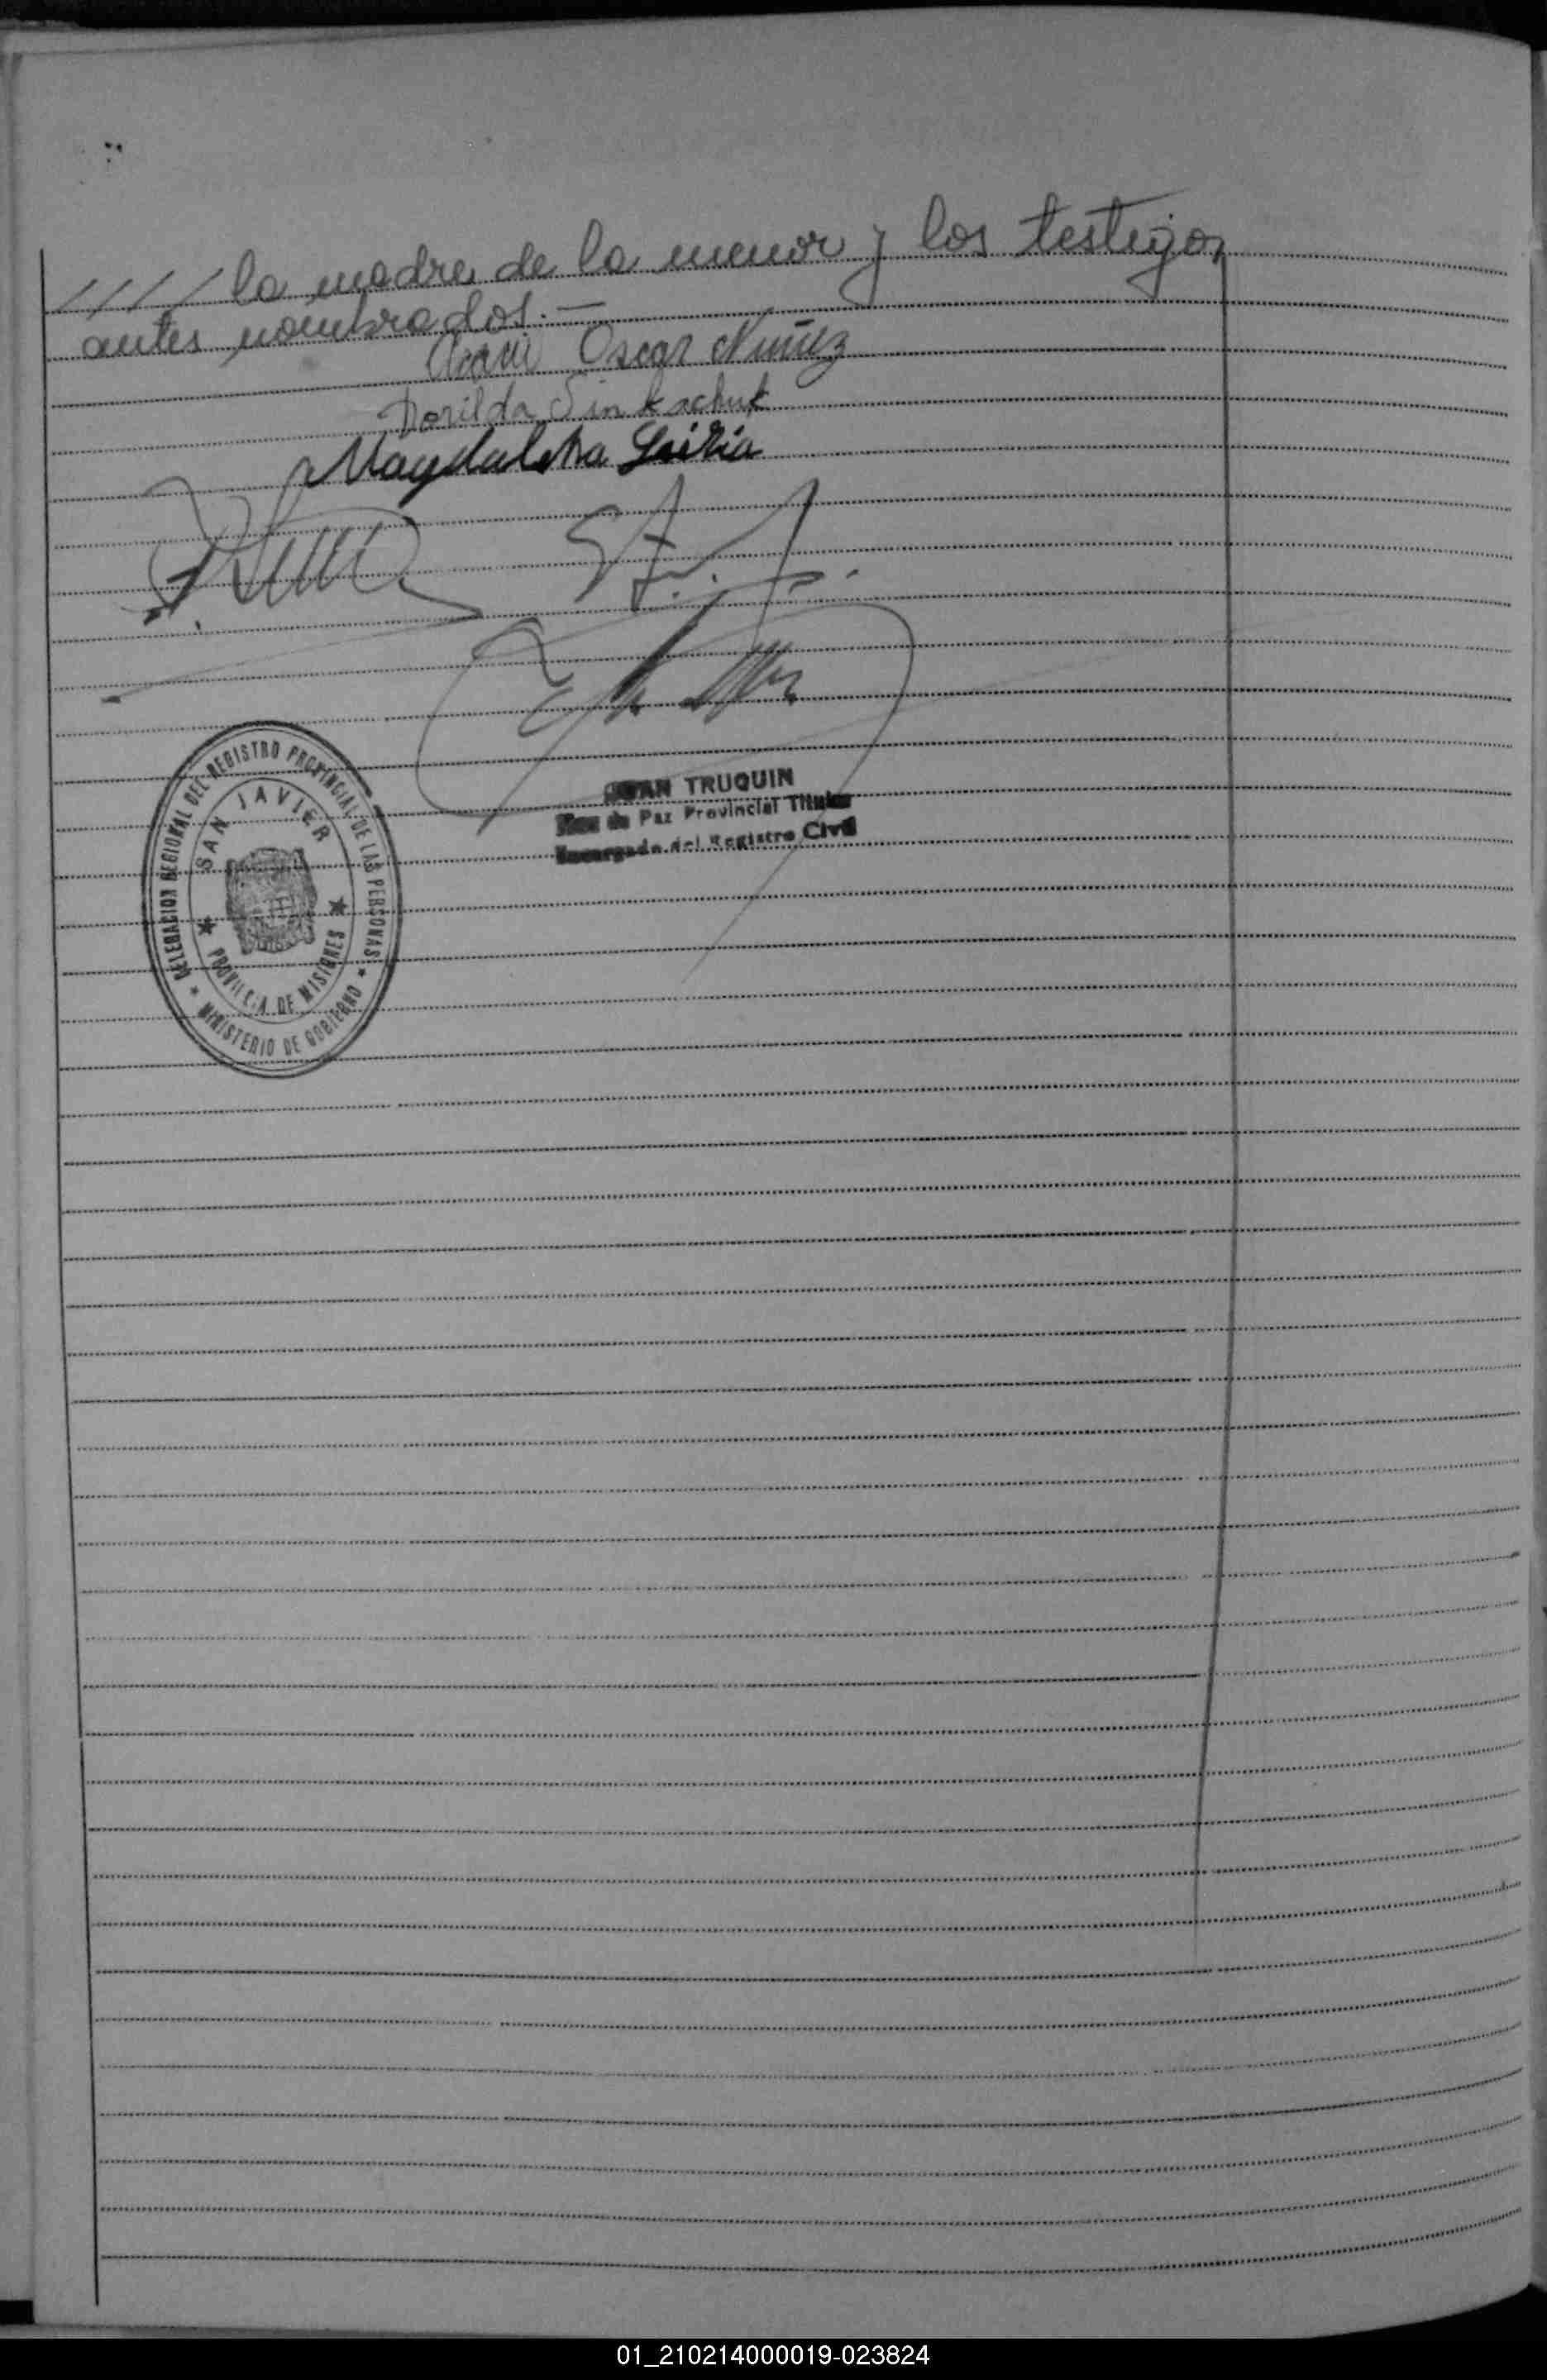 //// la madre de la menor y los testigos
antes nombrados.—
Oscar Nuñez
Dorilda Sinkachuk
Magdalena
DELEGACION REGIONAL DEL REGISTRO PROVINCIAL DE LAS PERSONAS
SAN JAVIER
PROVINCIA DE MISIONES
* MINISTERIO DE GOBIERNO *
JUAN TRUQUIN
Juez de Paz Provincial Titular
Encargado del Registro Civil
01_210214000019-023824